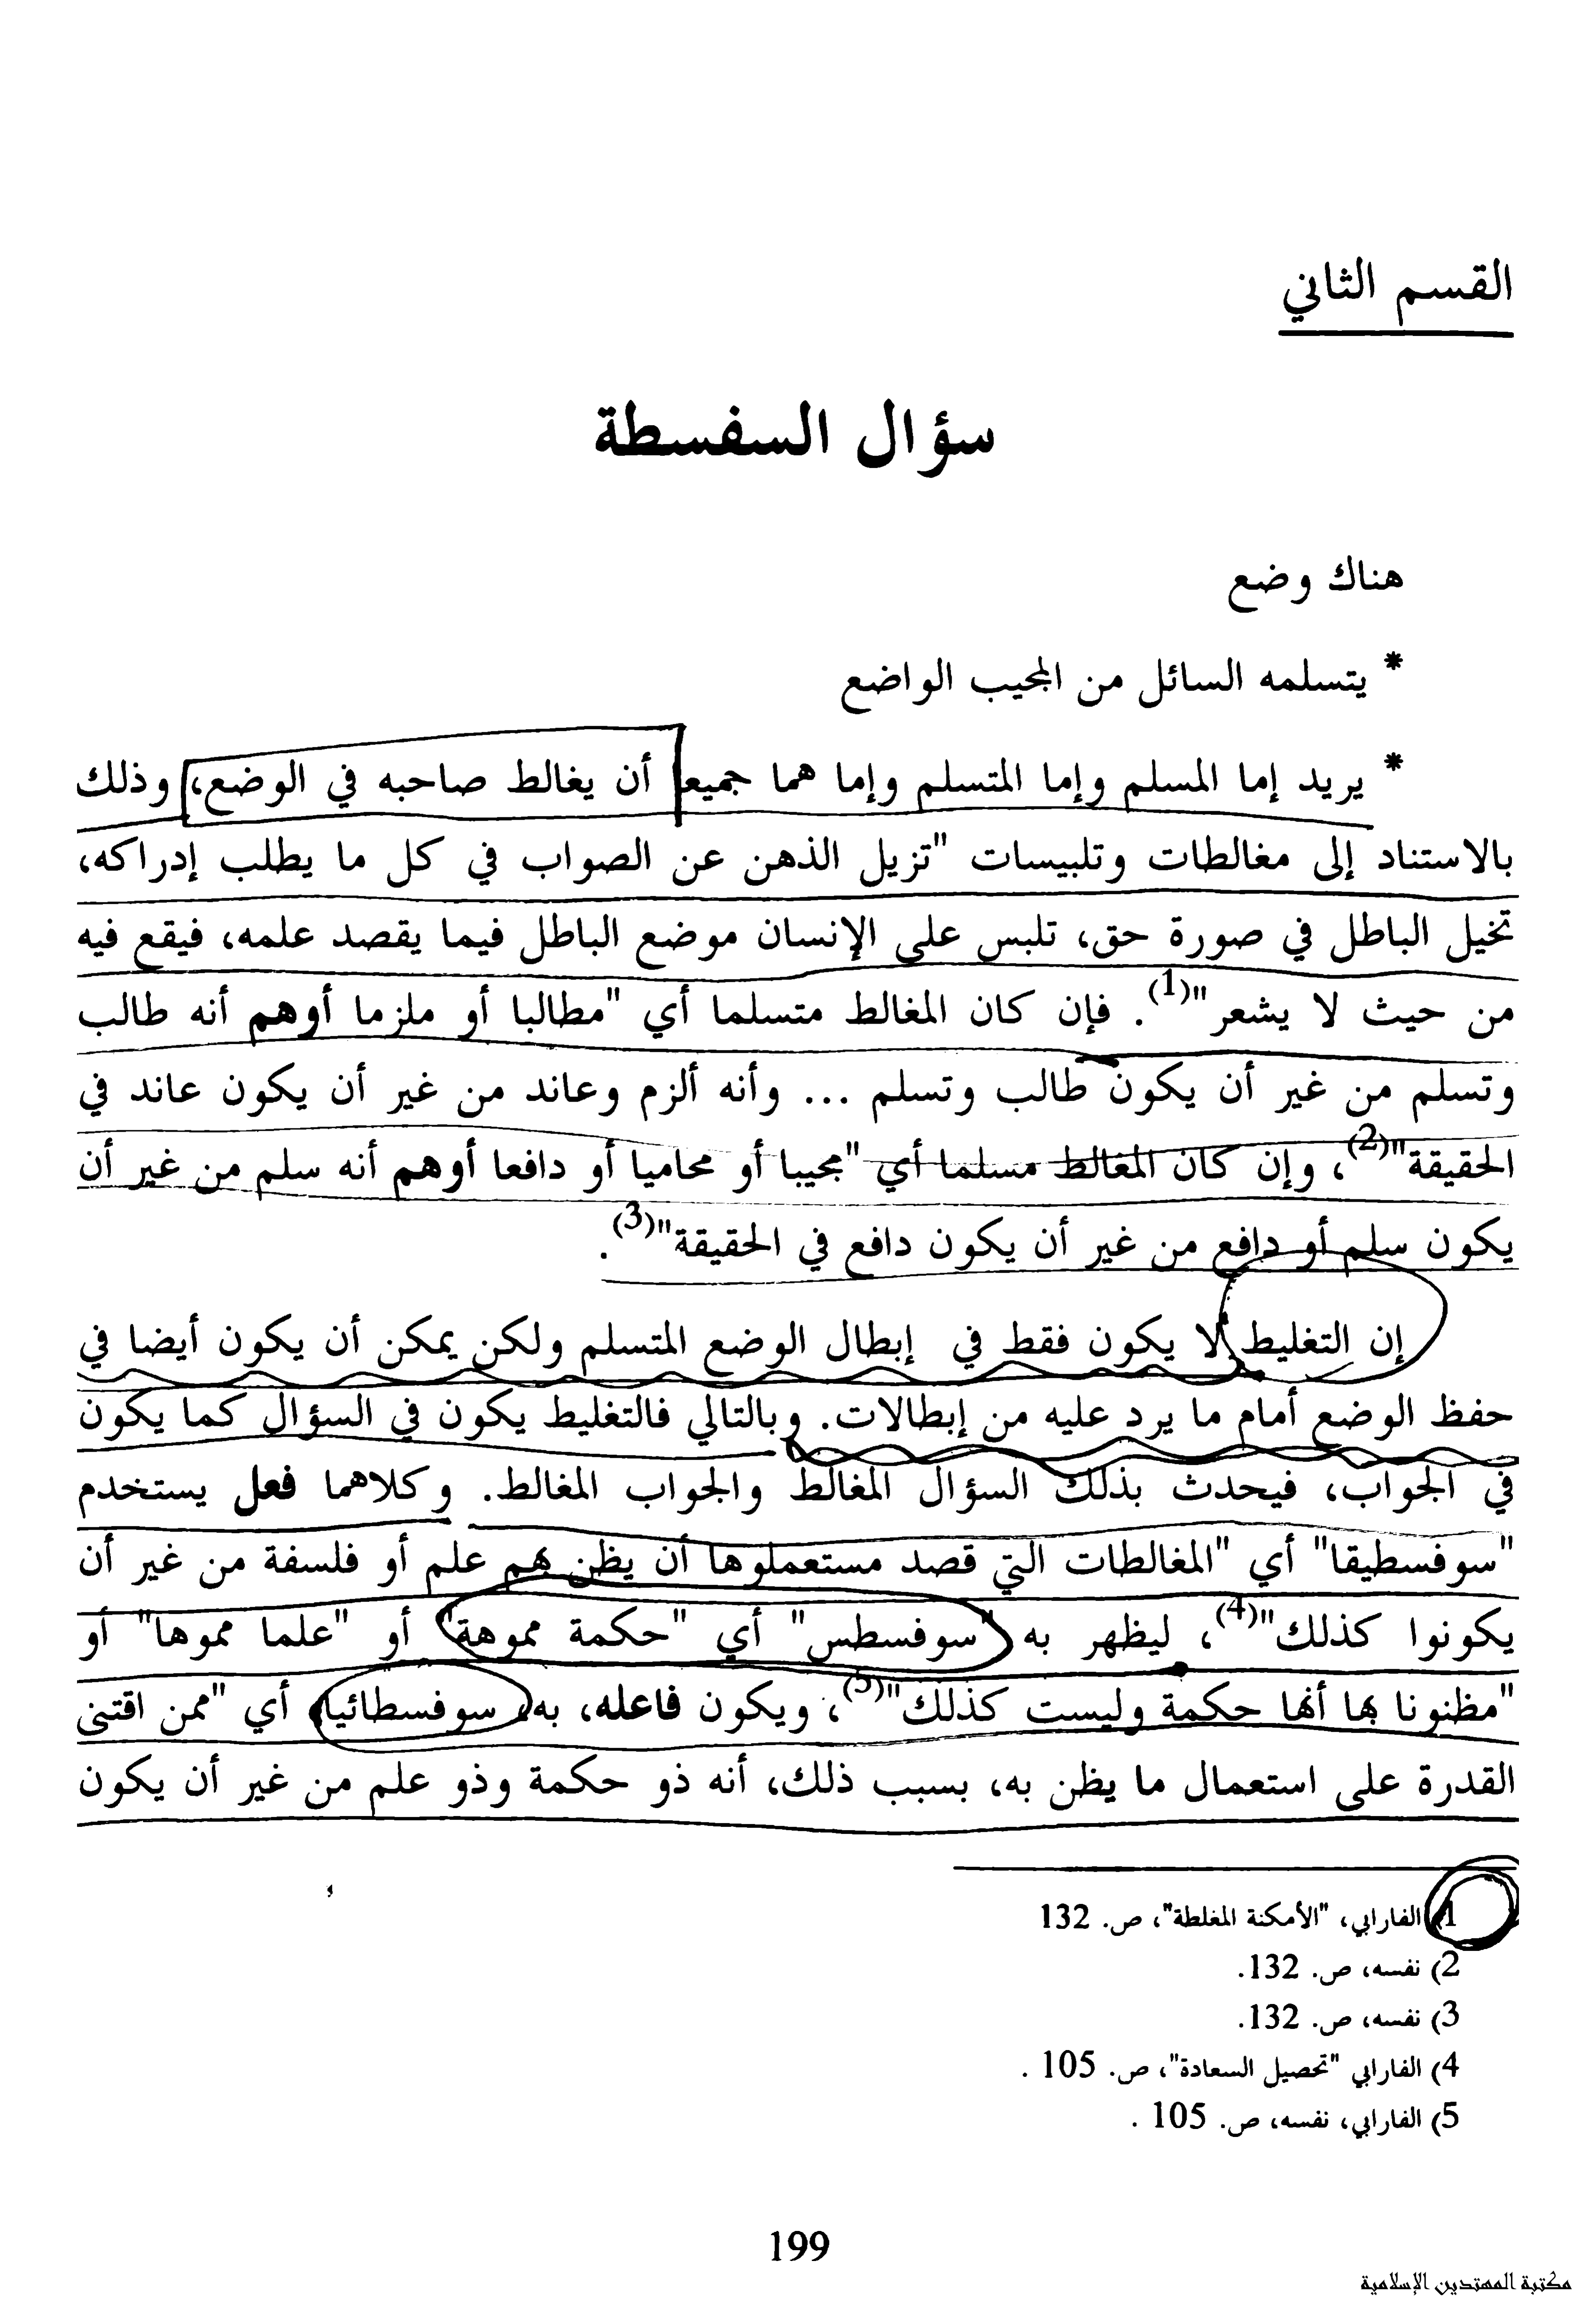 القسم الثاني
سؤال السفسطة
هناك وضع
* يتسلمه السائل من المجيب الواضع
* يريد إما المسلم وإما المتسلم وإما هما جميعا أن يغالط صاحبه في الوضع، وذلك
بالاستناد إلى مغالطات وتلبيسات "تزيل الذهن عن الصواب في كل ما يطلب إدراكه،
تخيل الباطل في صورة حق، تلبس على الإنسان موضع الباطل فيما يقصد علمه، فيقع فيه
من حيث لا يشعر"(1). فإن كان المغالط متسلما أي "مطالبا أو ملزما أوهم أنه طالب
وتسلم من غير أن يكون طالب وتسلم ... وأنه ألزم وعاند من غير أن يكون عاند في
الحقيقة"(2)، وإن كان المغالط مسلما أي "مجيبا أو محاميا أو دافعا أوهم أنه سلم من غير أن
يكون سلم أو دافع من غير أن يكون دافع في الحقيقة"(3).
إن التغليط لا يكون فقط في إبطال الوضع المتسلم ولكن يمكن أن يكون أيضا في
حفظ الوضع أمام ما يرد عليه من إبطالات. وبالتالي فالتغليط يكون في السؤال كما يكون
في الجواب، فيحدث بذلك السؤال المغالط والجواب المغالط. وكلاهما فعل يستخدم
"سوفسطيقا" أي "المغالطات التي قصد مستعملوها أن يظن بهم علم أو فلسفة من غير أن
يكونوا كذلك"(4)، ليظهر به "سوفسطس" أي "حكمة مموهة" أو "علما مموها" أو
"مظنونا بها أنها حكمة وليست كذلك"(5)، ويكون فاعله، به، سوفسطائيا، أي "ممن اقتنى
القدرة على استعمال ما يظن به، بسبب ذلك، أنه ذو حكمة وذو علم من غير أن يكون
1) الفارابي، "الأمكنة المغلطة"، ص. 132
2) نفسه، ص. 132.
3) نفسه، ص. 132.
4) الفارابي "تحصيل السعادة"، ص. 105 .
5) الفارابي، نفسه، ص. 105 .
199
مكتبة المهتدين الإسلامية